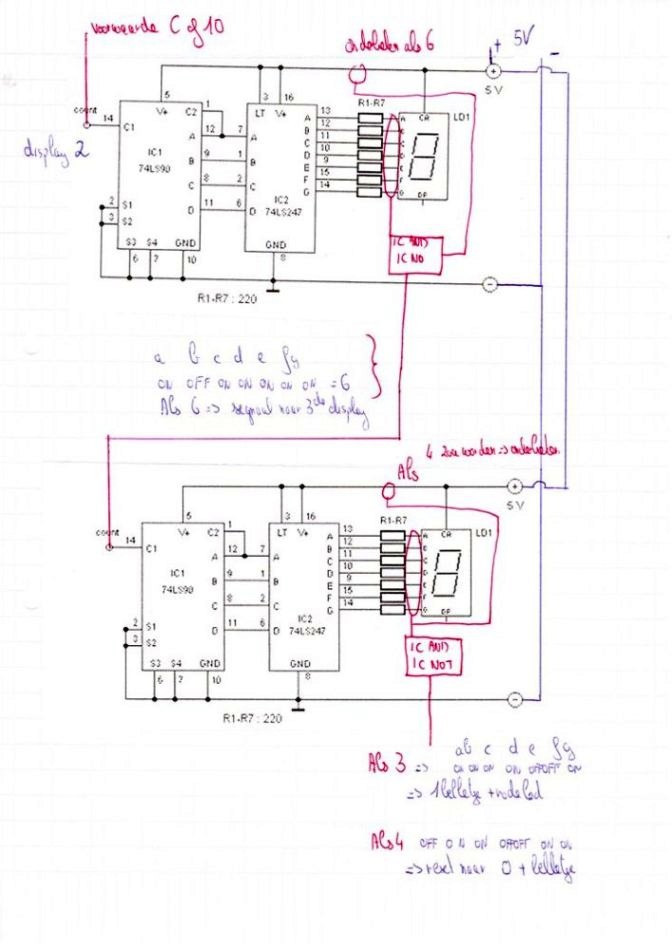 voorwaarde C of 10
onderbreken als 6
+ 5V -
display 2
5 V
count 14 C1
5 V+
C2 1
LT 3 16
R1-R7
CA LD1
IC1
74LS90
IC2
74LS247
A 12 7 A
B 9 1 B
C 8 2 C
D 11 6 D
A 13 A
B 12 B
C 11 C
D 10 D
E 9 E
F 15 F
G 14 G
DP
2 S1
3 S2
S3 S4 GND
6 7 10
GND
8
IC AND
IC NO
R1-R7 : 220
a b c d e f g
ON OFF ON ON ON ON ON = 6
Als 6 => signaal naar 3de display
4 zou worden => onderbreken
Als
5 V
count 14 C1
5 V+
C2 1
LT 3 16
R1-R7
CA LD1
IC1
74LS90
IC2
74LS247
A 12 7 A
B 9 1 B
C 8 2 C
D 11 6 D
A 13 A
B 12 B
C 11 C
D 10 D
E 9 E
F 15 F
G 14 G
DP
2 S1
3 S2
S3 S4 GND
6 7 10
GND
8
IC AND
IC NOT
R1-R7 : 220
a b c d e f g
Als 3 => ON ON ON ON OFF OFF ON
=> 1 belletje + rode led
Als 4 OFF ON ON OFF OFF ON ON
=> reset naar 0 + belletje